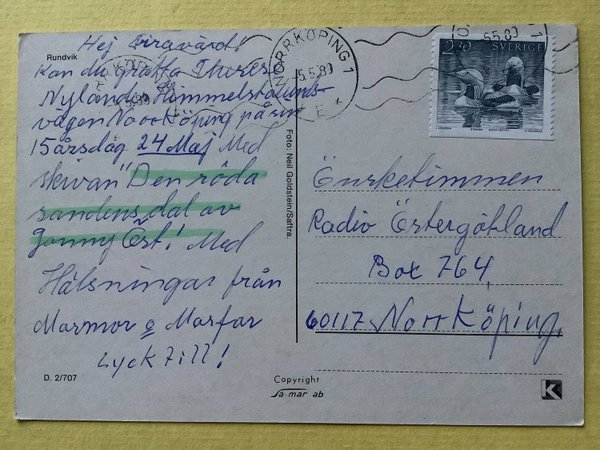 Rundvik
Hej Giravärd!
Kan du gratta Therese
Nyländer Himmelstalunds-
vägen Norrköping på sin
15 årsdag 24 Maj! Med
skivan "Den röda
sandens dal av
Jonny Öst! Med
Hälsningar från
Marmor o Marfar
Lyck till!
D. 2/707
Foto: Neil Goldstein/Saftra.
Copyright
sa-mar ab
NORRKÖPING 1
5.5.89
5.5.89
2.30 SVERIGE
Önsketimmen
Radio Östergötland
Box 764,
60117 Norrköping,
K